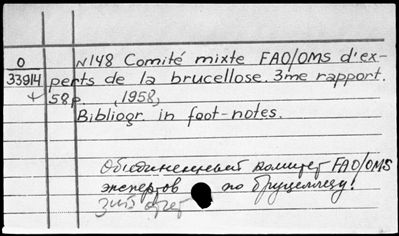 O N148 Comité mixte FAO/OMS d'ex-
33914 perts de la brucellose. 3me rapport.
58p. (1958)
Bibliogr. in foot-notes.
Объединенный комитет FAO/OMS
экспертов по бруцеллезу.
3ий отчет